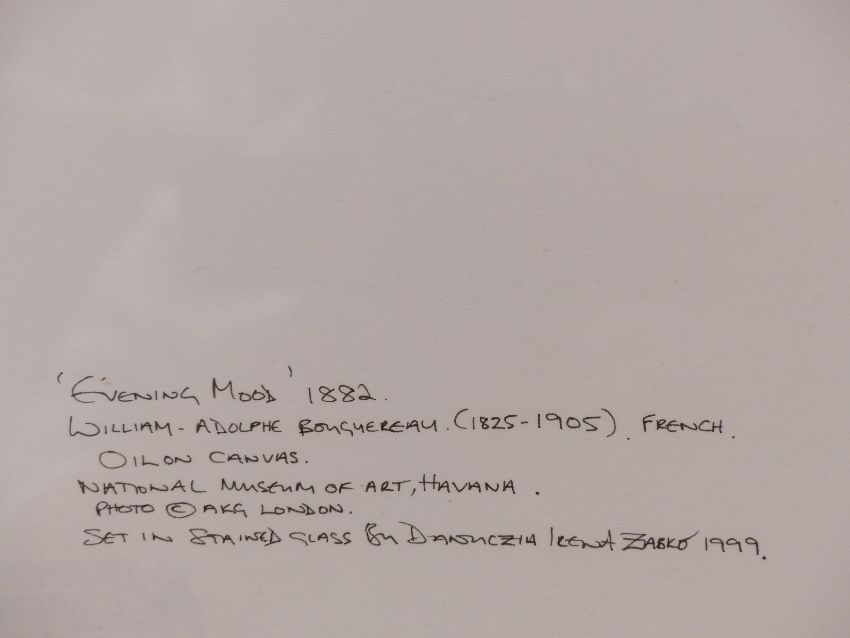 'Evening Mood' 1882.
William-Adolphe Bouguereau. (1825-1905). French.
Oil on canvas.
National Museum of Art, Havana.
Photo © AKG London.
Set in stained glass by Danuczia Irena Zabko 1999.